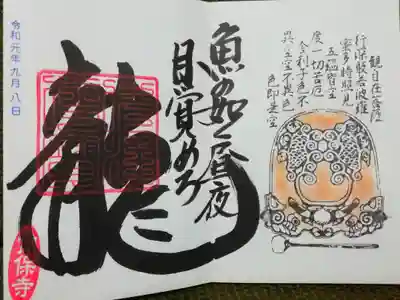 観自在菩薩
行深般若波羅
蜜多時照見
五蘊皆空
度一切苦厄
舎利子色不
異空空不異色
色即是空
魚の如く昼夜
目覚めろ
龍
令和元年九月八日
保寺